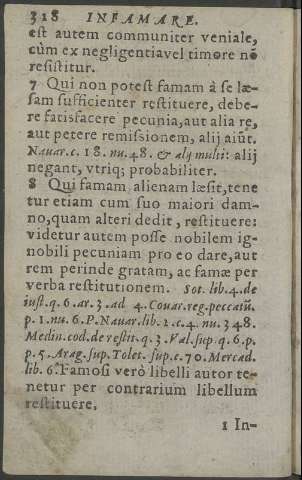 318 INFAMARE.
est autem communiter veniale,
cùm ex negligentia vel timore nō
resistitur.
7 Qui non potest famam à se læ-
sam sufficienter restituere, debe-
re satisfacere pecunia, aut alia re,
aut petere remissionem, alij aiūt.
Nauar.c. 18. nu. 48. & alij multi: alij
negant, vtriq; probabiliter.
8 Qui famam alienam læsit, tene
tur etiam cum suo maiori dam-
no, quam alteri dedit, restituere:
videtur autem posse nobilem ig-
nobili pecuniam pro eo dare, aut
rem perinde gratam, ac famæ per
verba restitutionem. Sot. lib. 4. de
iust. q. 6. ar. 3. ad 4. Couar. reg. peccatū.
p. 1. nu. 6. P. Nauar. lib. 2. c. 4. nu. 348.
Medin. cod. de restit. q. 3. Val. sup. q. 6. p.
p. 5. Arag. sup. Tolet. sup. c. 70. Mercad.
lib. 6. Famosi verò libelli autor te-
netur per contrarium libellum
restituere.
1 In-